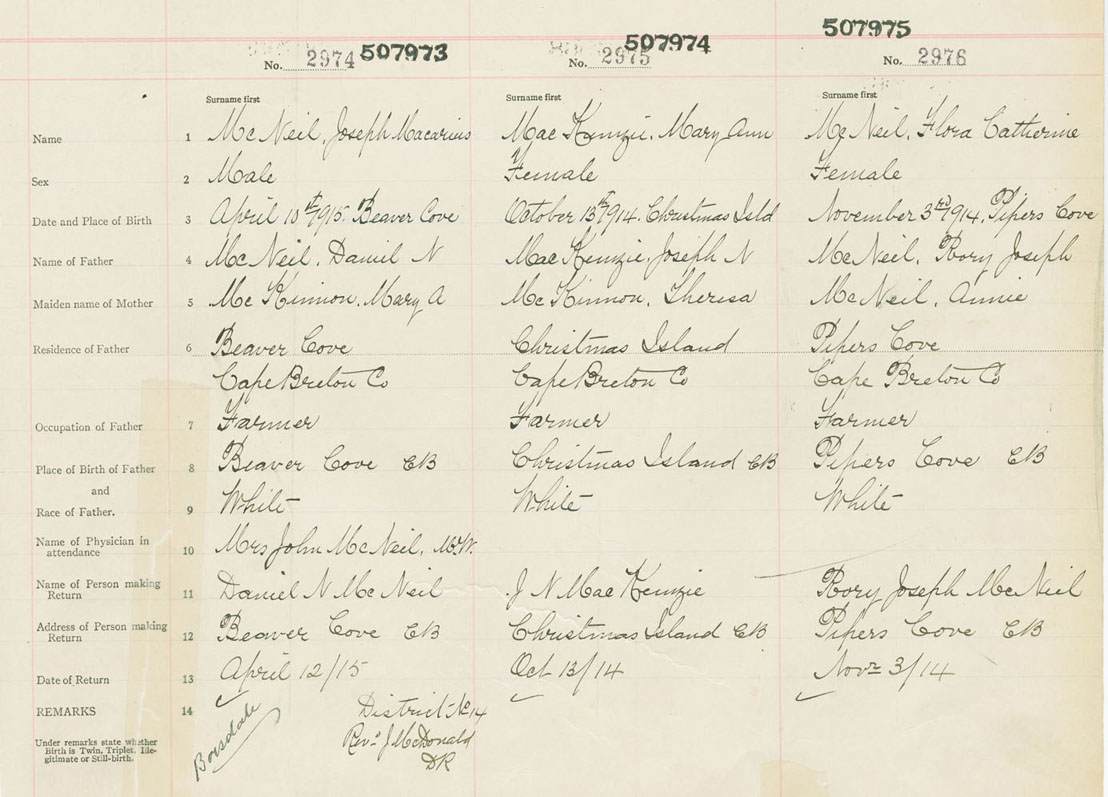 507975
507974
507973
No. 2974 No. 2975 No. 2976
Surname first Surname first Surname first
Name 1 McNeil, Joseph Macarius Mac Kenzie, Mary Ann McNeil, Flora Catherine
Sex 2 Male Female Female
Date and Place of Birth 3 April 10th 1915. Beaver Cove October 13th 1914. Christmas Isld November 3rd 1914, Pipers Cove
Name of Father 4 McNeil, Daniel N Mac Kenzie, Joseph N McNeil, Rory Joseph
Maiden name of Mother 5 McKinnon, Mary A McKinnon, Theresa McNeil, Annie
Residence of Father 6 Beaver Cove Christmas Island Pipers Cove
Cape Breton Co Cape Breton Co Cape Breton Co
Occupation of Father 7 Farmer Farmer Farmer
Place of Birth of Father 8 Beaver Cove CB Christmas Island CB Pipers Cove CB
and
Race of Father. 9 White White White
Name of Physician in
attendance 10 Mrs John McNeil, M.W.
Name of Person making
Return 11 Daniel N McNeil J N Mac Kenzie Rory Joseph McNeil
Address of Person making
Return 12 Beaver Cove CB Christmas Island CB Pipers Cove CB
Date of Return 13 April 12/15 Oct 13/14 Novr 3/14
REMARKS 14 Boisdale District No 14
Under remarks state whether
Birth is Twin, Triplet, Ille-
gitimate or Still-birth.
Revd J McDonald
DR